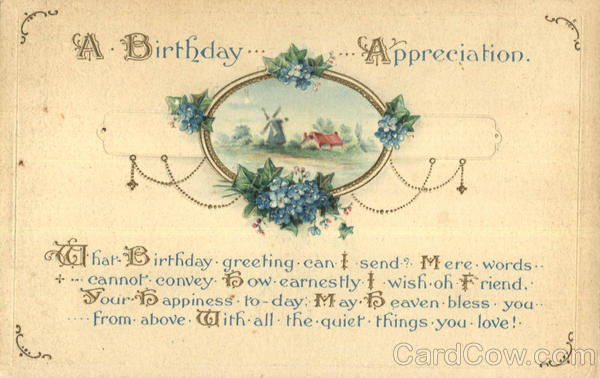 A · Birthday ··· ··· Appreciation.
What · Birthday · greeting · can · I · send? · Mere · words ··
+ ·-· cannot · convey · How · earnestly · I · wish · oh · Friend,
Your · Happiness · to-day; · May · Heaven · bless · you ··
···· from · above · With · all · the · quiet · things · you · love! ·
CardCow.com